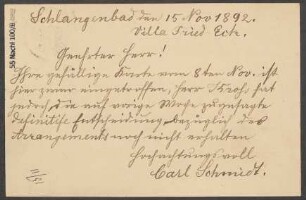 Schlangenbad den 15. Nov 1892.
Villa Fried Eck.
Geehrter Herr!
Ihre gefällige Karte vom 8ten Nov. ist
hier zwar eingetroffen, Herr Krohs hat
jedoch die auf vorige Woche zugesagte
definitive Entscheidung bezüglich des
Arrangements noch nicht erhalten
Hochachtungsvoll
Carl Schmidt.